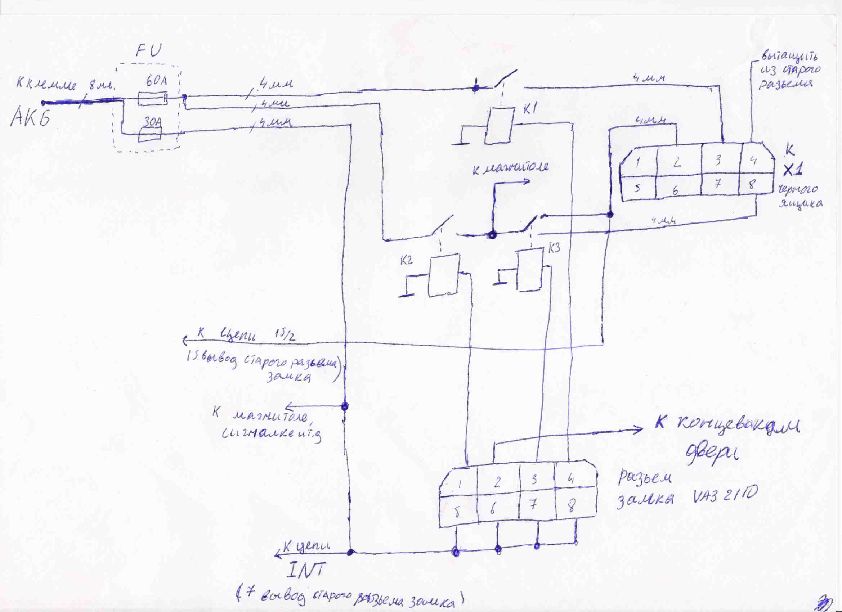 FU
К клемме 8 мм.
АКБ
60А
30А
4мм
4мм
4мм
К1
4мм
вытащить
из старого
разъема
4мм
К магнитоле
1 2 3 4
5 6 7 8
К
X1
черного
ящика
4мм
К2
К3
К цепи 15/2
(15 вывод старого разъема)
замка
К магнитоле,
сигналке итд
К концевикам
двери
1 2 3 4
5 6 7 8
разъем
замка VAЗ 2110
К цепи
INT
(7 вывод старого разъема замка)